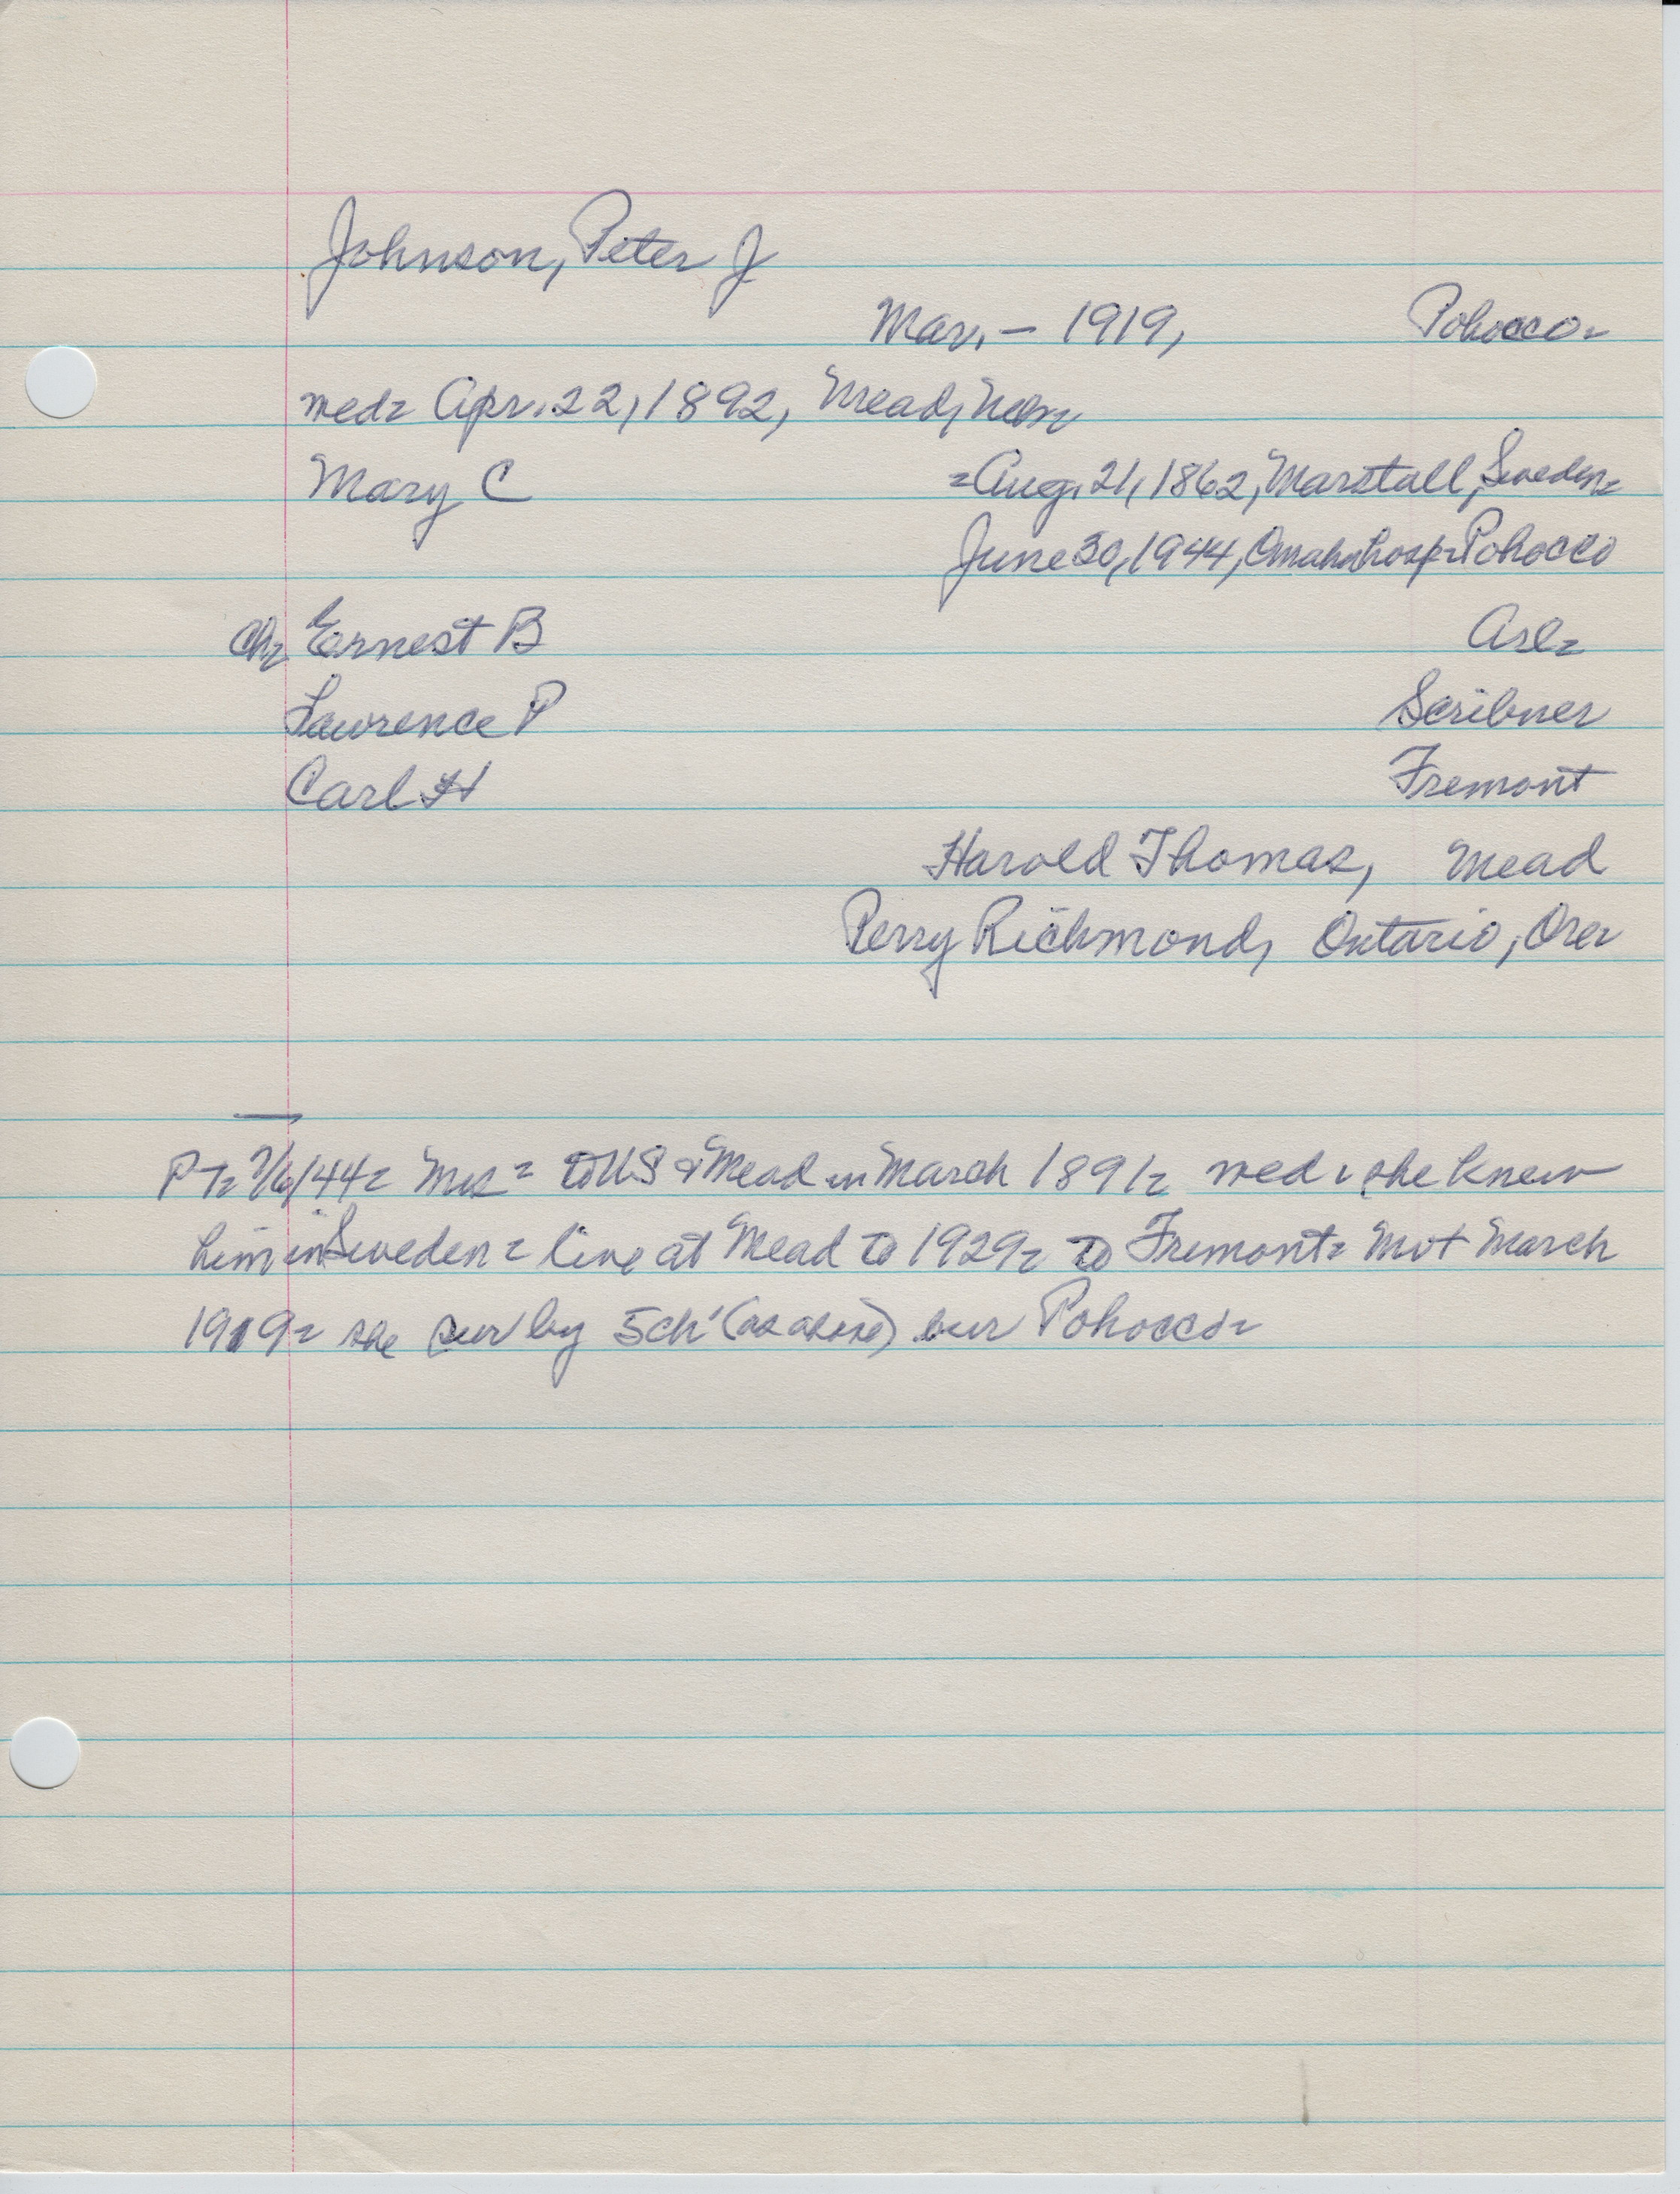 Johnson, Peter J
Mar. – 1919, Pohocco=
wed= Apr. 22, 1892, Mead, Nebr=
Mary C =Aug. 21, 1862, Marstall, Sweden=
June 30, 1944, Omaha hosp= Pohocco
Ch= Ernest B Arl=
Lawrence P Scribner
Carl H Fremont
Harold Thomas, Mead
Perry Richmond, Ontario, Ore=
PT= 7/6/44= Mrs = to US & Mead in March 1891= wed = she knew
him in Sweden = live at Mead to 1929= to Fremont= Mr + March
1919= she sur by 5 ch' (as above) bur Pohocco=